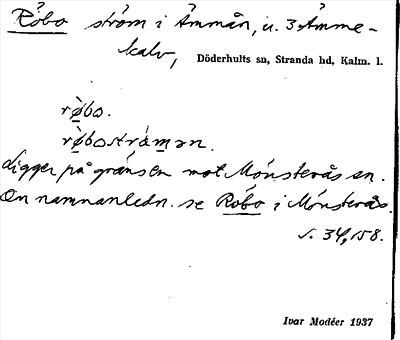 Röbo ström i Ämmån, u. 3 Ämme-
kalv,
Döderhults sn, Stranda hd, Kalm. l.
rø̀bo.
rø̀boström ən.
Ligger på gränsen mot Mönsterås sn.
Om namnanledn. se Röbo i Mönsterås
s. 34,158.
Ivar Modéer 1937